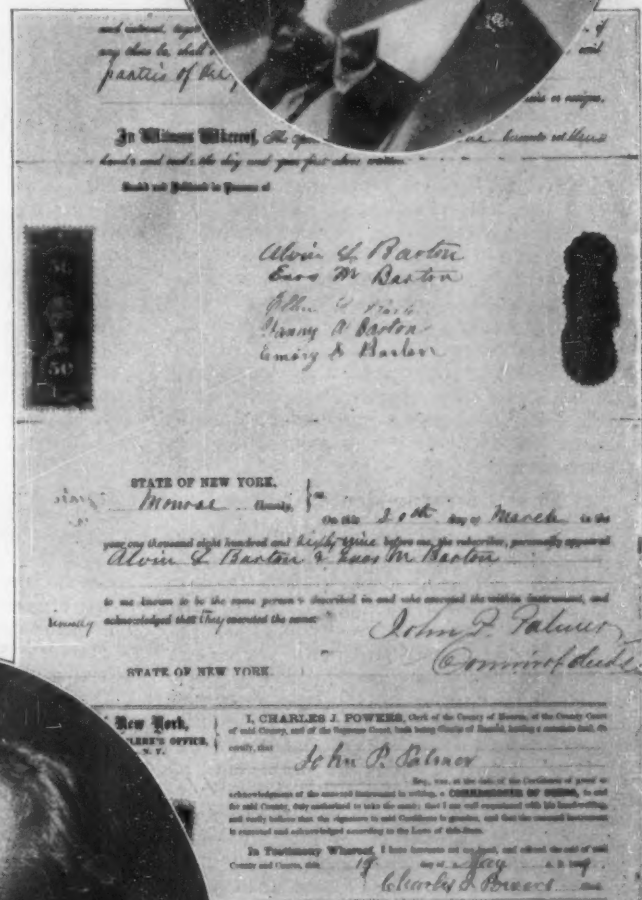 and
any
parties of
or assigns.
In Witness Whereof, The hereunto set their
hands and seals the day and year first above written.
Sealed and Delivered in Presence of
50
50
Alvin L Barton
Enos M Barton
Fanny A Barton
Emory D Barton
STATE OF NEW YORK,
Monroe County, ss.
On this 20th day of March in the
year one thousand eight hundred and sixty-nine before me, the subscriber, personally appeared
Alvin L Barton & Enos M Barton
to me known to be the same persons described in and who executed the within instrument, and
acknowledged that they executed the same
John P. Palmer
Comnir of deeds
STATE OF NEW YORK.
New York,
CLERK'S OFFICE,
N. Y.
I, CHARLES J. POWERS, Clerk of the County of Monroe, of the County Court
of said County, and of the Supreme Court, both being Courts of Record, having a common Seal, do
certify, that
John P. Palmer
Esq., was, at the date of the Certificate of proof or
acknowledgment of the annexed instrument in writing, a COMMISSIONER OF DEEDS, in and
for said County, duly authorized to take the same; that I am well acquainted with his handwriting,
and verily believe that the signature to said Certificate is genuine, and that the annexed instrument
is executed and acknowledged according to the Laws of this State.
In Testimony Whereof, I have hereunto set my hand, and affixed the seal of said
County and Courts, this 19 day of May A. D. 1869
Charles J. Powers Clerk